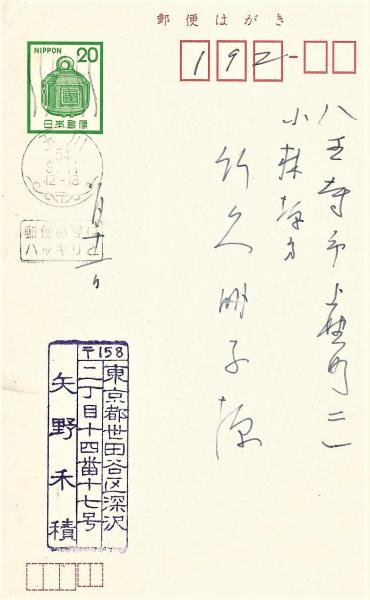 郵便はがき
192-
NIPPON 20
日本郵便
玉川
54
12-18
郵便番号は
ハッキリと
八王子市上野町二一
小林様方
竹久明子様
月十一日
〒158
東京都世田谷区深沢
二丁目十四番十七号
矢野禾積